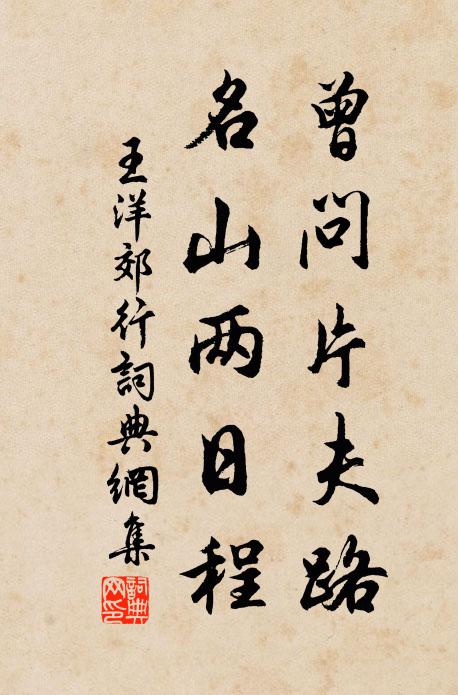 曾問片夫路
名山两日程
王洋郊行詞典網集
詞典网印